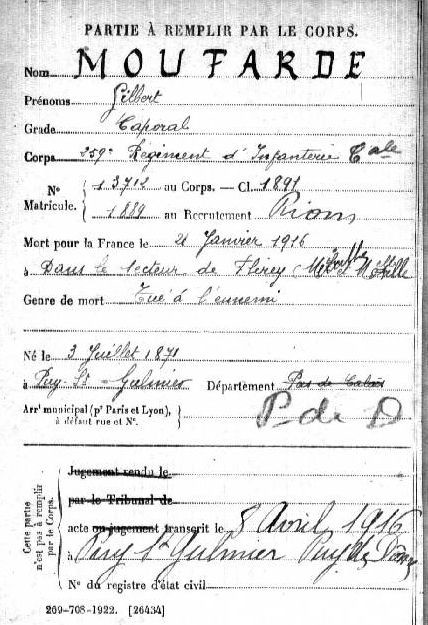 PARTIE À REMPLIR PAR LE CORPS.
Nom MOUFARDE
Prénoms Gilbert
Grade Caporal
Corps 359e Régiment d'Infanterie
N° Matricule. 13712 au Corps. — Cl. 1891
1889 au Recrutement Riom
Mort pour la France le 21 Janvier 1916
à Dans le secteur de Flirey Mthe et Mselle
Genre de mort Tué à l'ennemi
Né le 3 Juillet 1871
à Puy-St-Gulmier Département Pas de Calais
Arrt municipal (pr Paris et Lyon), à défaut rue et N°. P. de D
Cette partie n'est pas à remplir par le Corps.
Jugement rendu le
par le Tribunal de
acte ou jugement transcrit le 8 Avril 1916
à Puy St Gulmier Puy de Dôme
N° du registre d'état civil
209-708-1922. [26434]